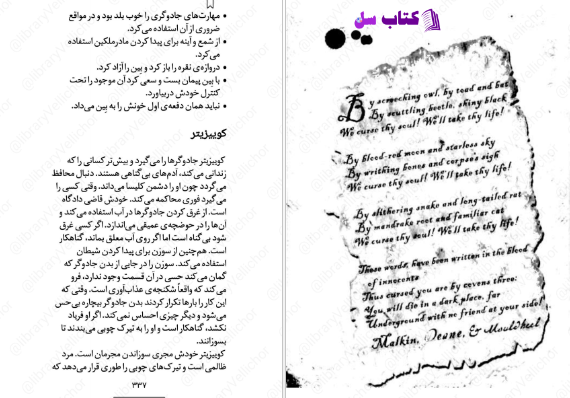 مهارت‌های جادوگری را خوب بلد بود و در مواقع
ضروری از آن استفاده می‌کرد.
از شمع و آینه برای پیدا کردن مادرملکین استفاده
می‌کرد.
دروازه‌ی نقره را باز کرد و بِین را آزاد کرد.
با بِین پیمان بست و سعی کرد آن موجود را تحت
کنترل خودش دربیاورد.
نباید همان دفعه‌ی اول خونش را به بِین می‌داد.
کوییزیتر
کوییزیتر جادوگرها را می‌گیرد و بیش‌تر کسانی را که
زندانی می‌کند، آدم‌های بی‌گناهی هستند. دنبال محافظ
می‌گردد چون او را دشمن کلیسا می‌داند. وقتی کسی را
می‌گیرد فوری محاکمه می‌کند. خودش قاضی دادگاه
است. از غرق کردن جادوگرها در آب استفاده می‌کند و
آن‌ها را در حوضچه‌ی عمیقی می‌اندازد. اگر کسی غرق
شود بی‌گناه است اما اگر روی آب معلق بماند، گناهکار
است. هم‌چنین از سوزن برای پیدا کردن شیطان
استفاده می‌کند. سوزن را در جایی از بدن جادوگر که
گمان می‌کند حسی در آن قسمت وجود ندارد، فرو
می‌کند که واقعاً شکنجه‌ی عذاب‌آوری است. وقتی که
این کار را بارها تکرار کردند بدن جادوگر بیچاره بی‌حس
می‌شود و دیگر چیزی احساس نمی‌کند. اگر او فریاد
نکشد، گناهکار است و او را به تیرک چوبی می‌بندند تا
بسوزانند.
کوییزیتر خودش مجری سوزاندن مجرمان است. مرد
ظالمی است و تیرک‌های چوبی را طوری قرار می‌دهد که
۳۳۷
کتاب سل
By screeching owl, by toad and bat
By scuttling beetle, shiny black
We curse thy soul! We'll take thy life!
By blood-red moon and starless sky
By writhing bones and corpse's sigh
We curse thy soul! We'll take thy life!
By slithering snake and long-tailed rat
By mandrake root and familiar cat
We curse thy soul! We'll take thy life!
These words have been written in the blood
of innocents
Thus cursed you are by covens three:
You will die in a dark place, far
Underground with no friend at your side!
Malkin, Deane, & Mouldheel